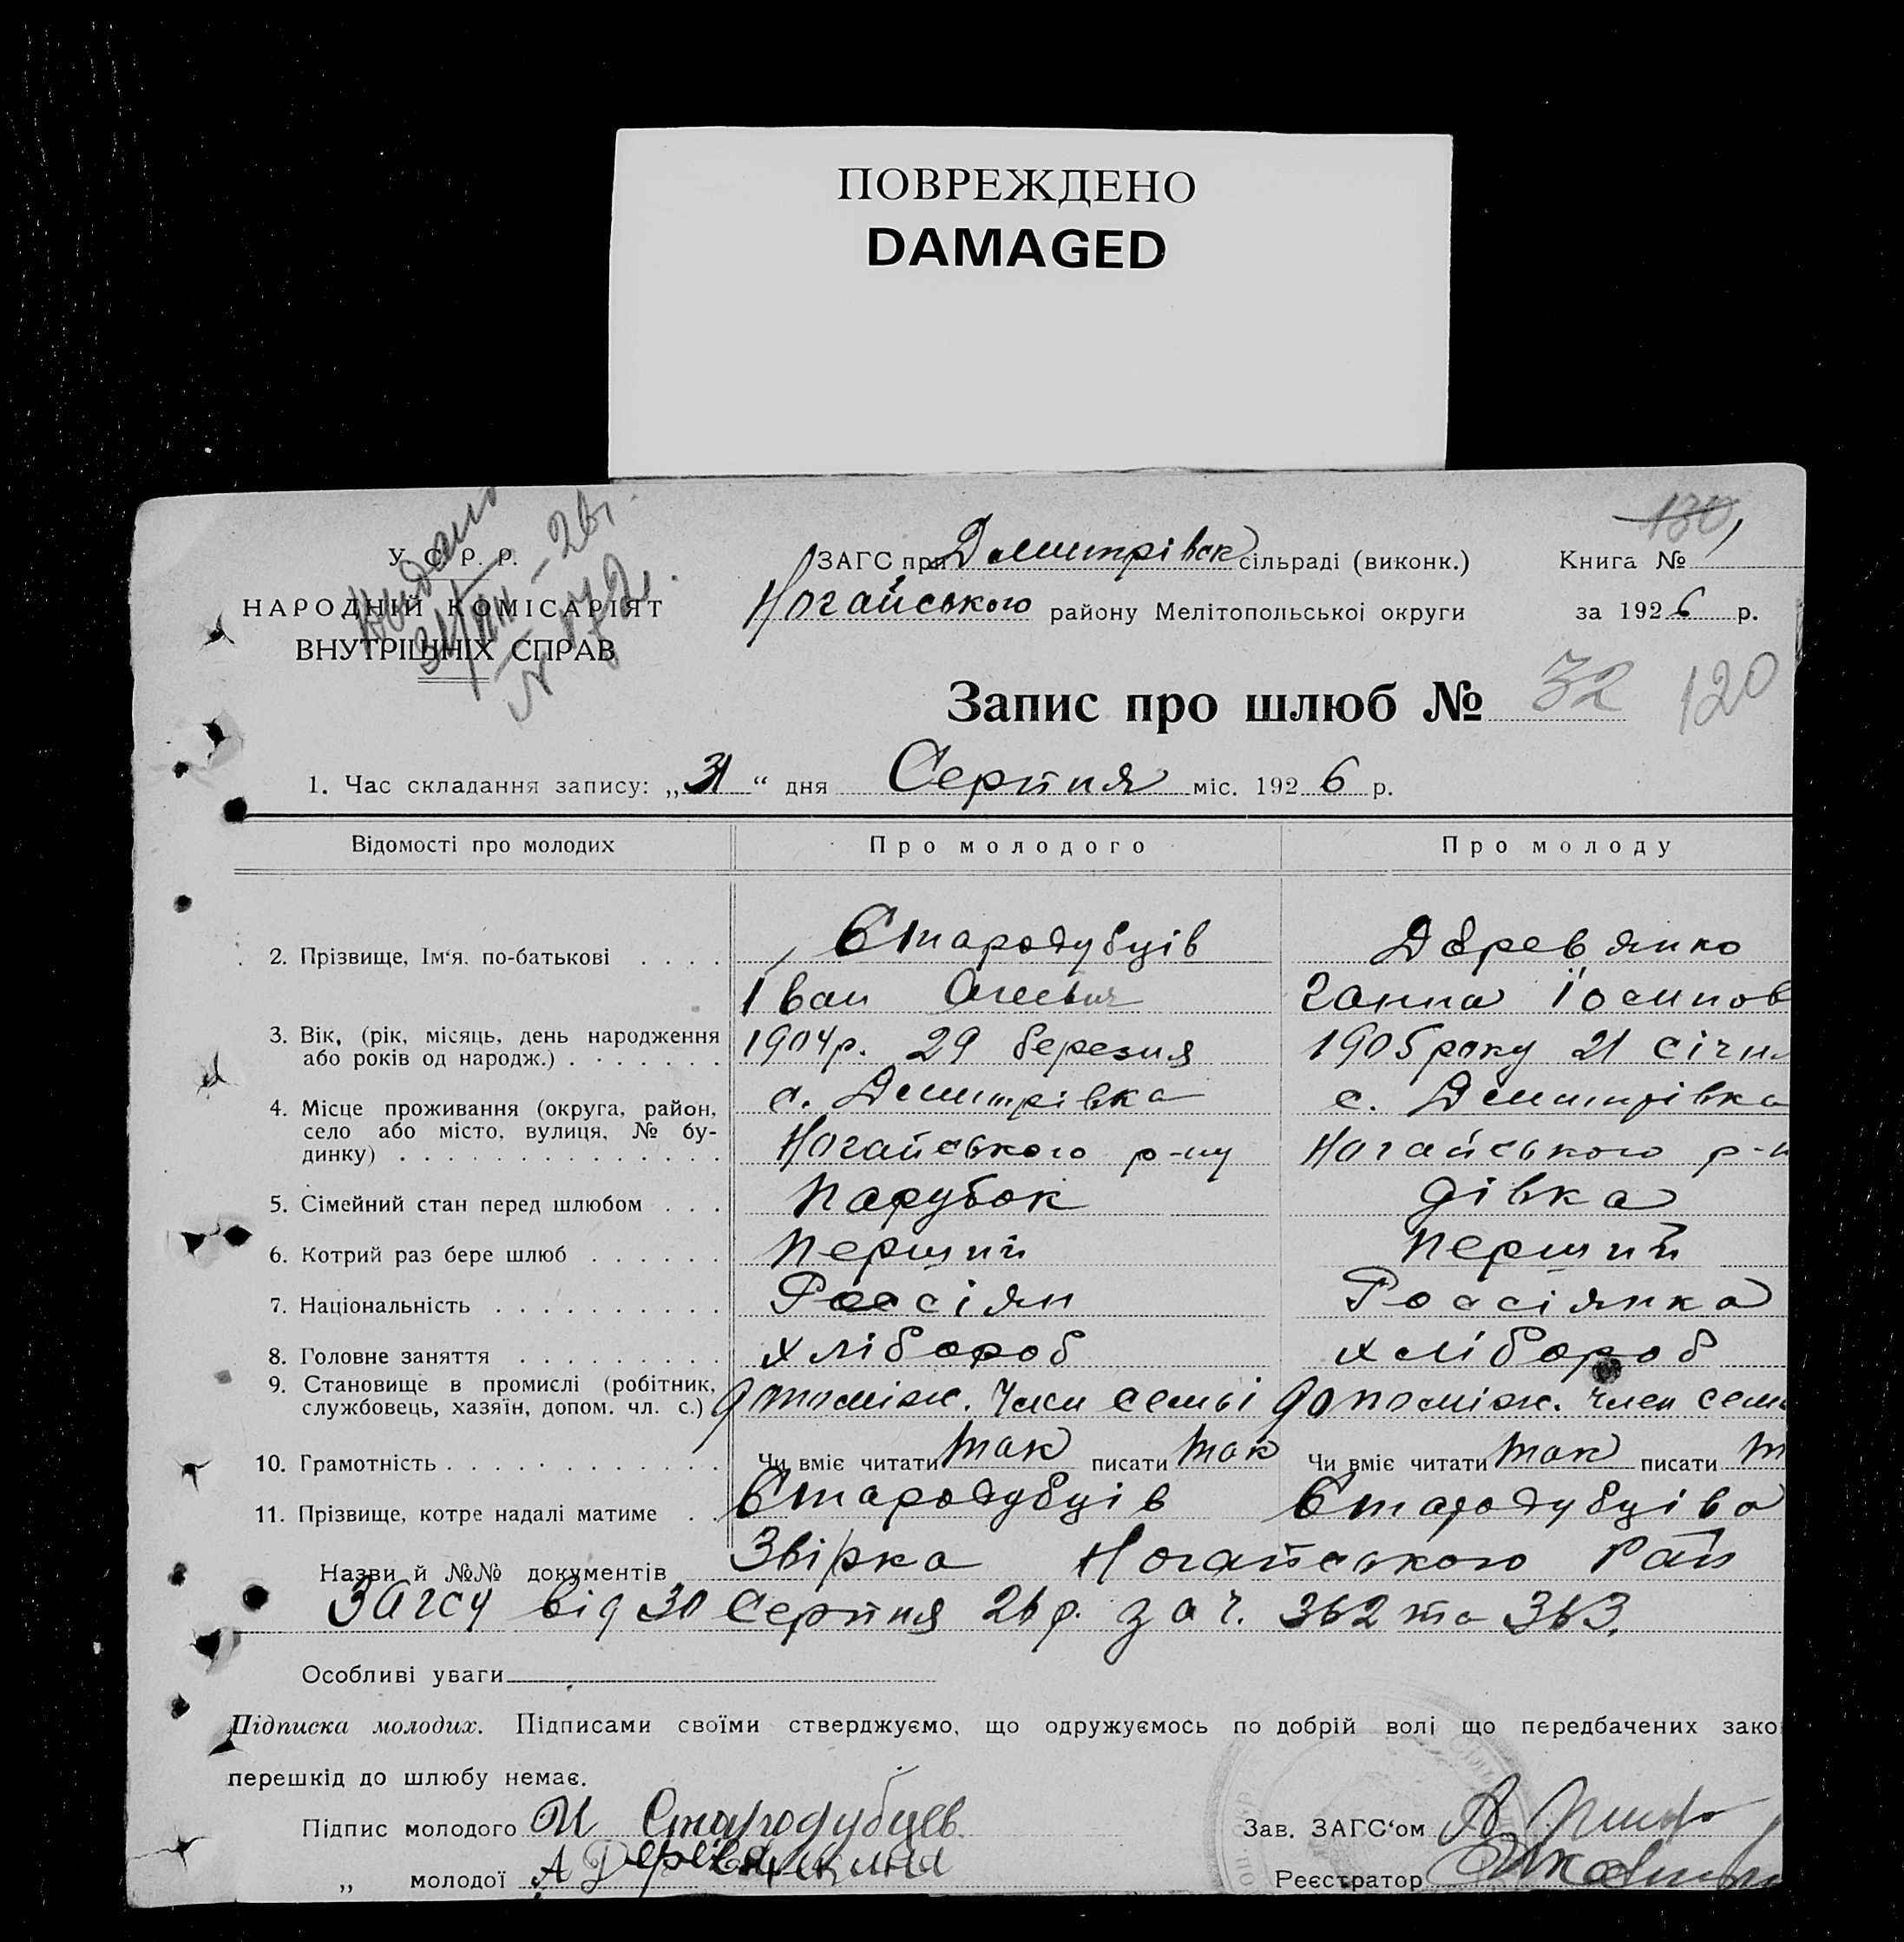 ПОВРЕЖДЕНО
DAMAGED
Видано
31/VIII – 26 г.
№ 172.
У. С. Р. Р.
НАРОДНІЙ КОМІСАРІЯТ
ВНУТРІШНІХ СПРАВ
ЗАГС при Дмитрівск сільраді (виконк.)
Ногайського району Мелітопольської округи
130,
Книга №
за 1926 р.
Запис про шлюб № 32 120
1. Час складання запису: „31“ дня Серпня міс. 1926 р.
Відомості про молодих Про молодого Про молоду
2. Прізвище, Ім‘я. по-батькові . . . . Стародубців Дерев янко
Іван Ганна Іосипов
3. Вік, (рік, місяць, день народження 1904р. 29 березня 1905 року 21 січн
або років од народж.) . . . . . . .
4. Місце проживання (округа, район, с. Дмитрівка с. Дмитрівка
село або місто, вулиця, № бу-
динку) . . . . . . . . . . . . . . Ногайського р-ну Ногайського р-н
5. Сімейний стан перед шлюбом . . . Парубок дівка
6. Котрий раз бере шлюб . . . . . . Перший Перший
7. Національність . . . . . . . . . . Россіян Россіянка
8. Головне заняття . . . . . . . . . хлібороб хлібороб
9. Становище в промислі (робітник, допоміж. член семьі допоміж. член сем
службовець, хазяїн, допом. чл. с.)
10. Грамотність . . . . . . . . . . . . Чи вміє читати так писати так Чи вміє читати так писати т
11. Прізвище, котре надалі матиме . . Стародубців Стародубціва
Назви й №№ документів Звірка Ногайського Рай
ЗАГСу від 30 Серпня 26 р. за ч. 362 та 363.
Особливі уваги
Підписка молодих. Підписами своїми стверджуємо, що одружуємось по добрій волі що передбачених зако
перешкід до шлюбу немає.
Підпис молодого И Стародубцев. Зав. ЗАГС‘ом
„ молодої А Реєстратор